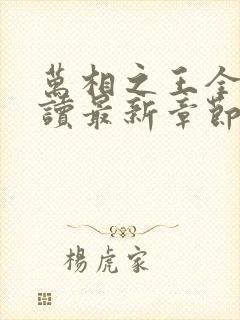 萬相之王全
讀最新章節
楊虎家